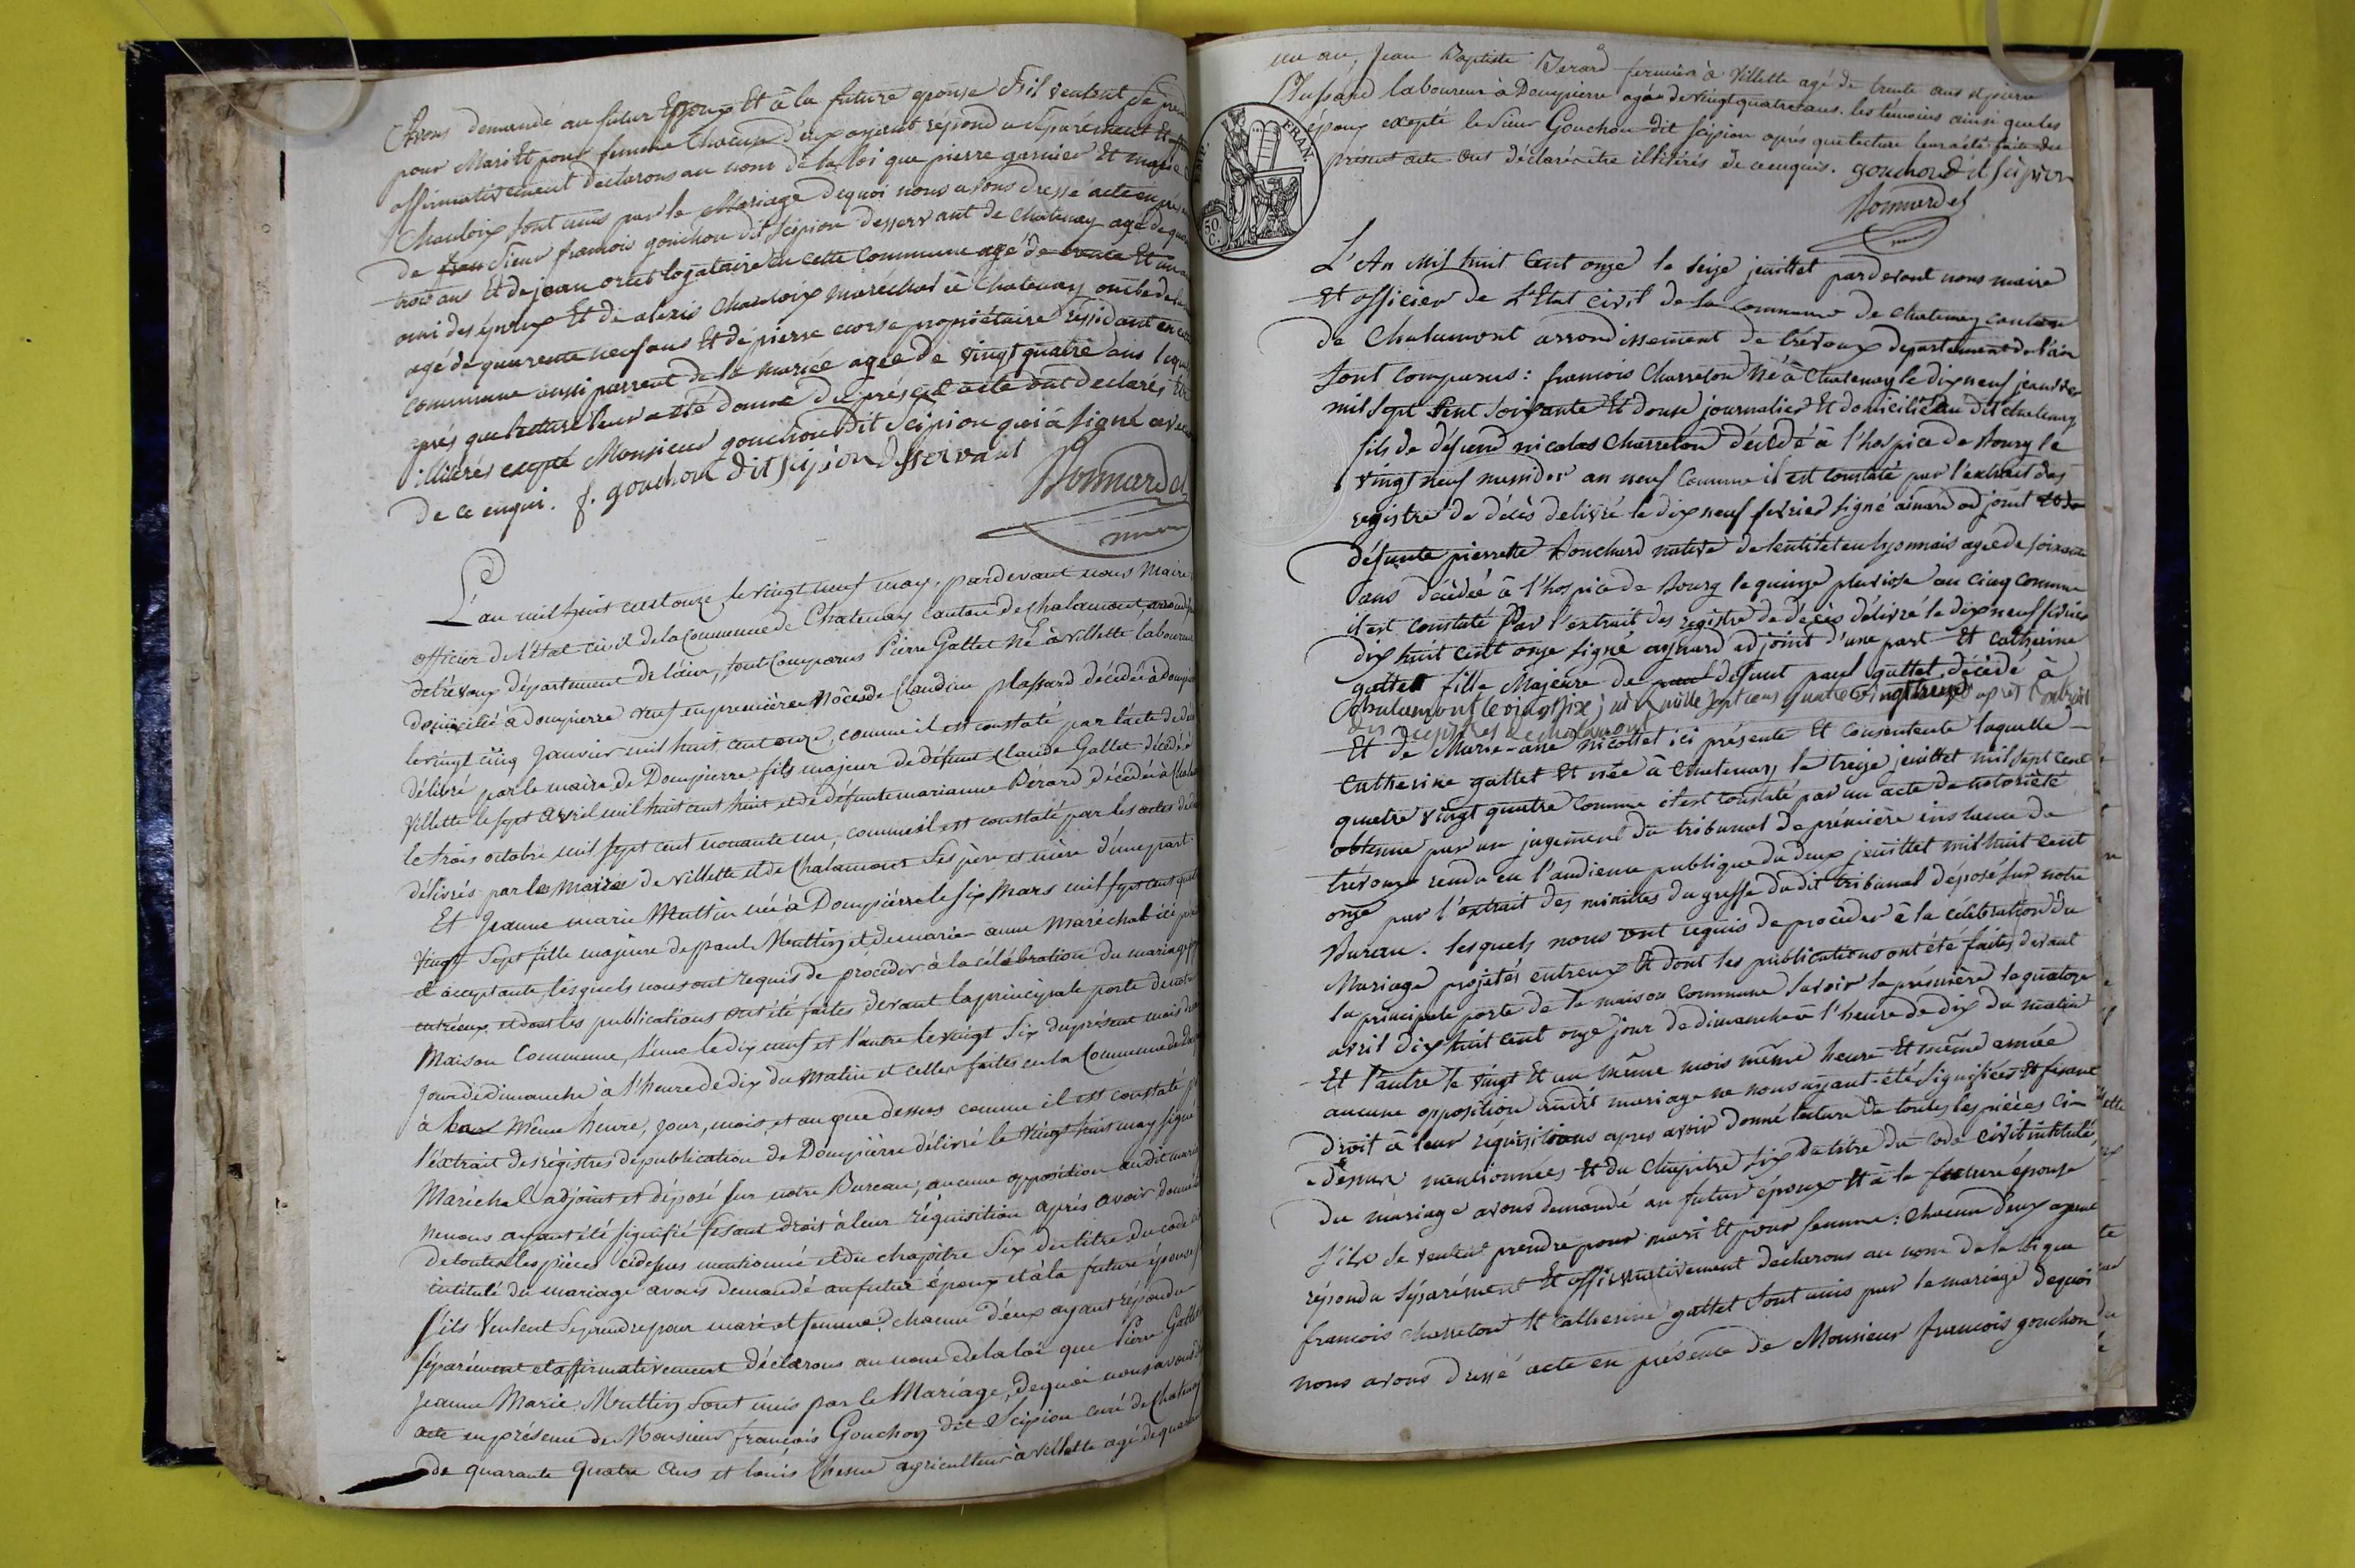 Avons demandé au futur Epoux Et à la future epouse S'il veulent se
pour Mari Et pour femme Chacun d'eux ayant répond u séparément Et
affirmativement declarons au nom de la loi que pierre garnier Et marie
Chanloix sont unis par le Mariage dequoi nous avons dressé acte en
de sieur francois gouchon dit scipion desservant de chatenay agé de
trois ans Et de jean ortet logataire en cette commune agé de trente Et un
ami des époux Et de alexis Chanloix maréchal à Chatenay oncle de la
agé de quarente neuf ans Et de pierre corse propriétaire résidant en cette
commune aussi parrent de la mariée agée de vingt quatre ans
aprés que lecture leur a été donné du présent acte ont declarés
illitéré exepté Monsieur gouchon dit Scipion qui à signé avec
de ce enqui. f. gouchon dit scipion desservant
Bonnardel
L'an mil huit cent onze, le vingt neuf may, pardevant nous Maire
officier de l'état civil de la Commune de Chatenay canton de Chalamont,
de trévoux département de l'ain, sont Comparus Pierre Gallet né à Villette laboureur
domicilié à dompierre veuf en première Nôces de Claudine plassard décédée à
le vingt cinq Janvier mil huit cent onze, comme il est constaté par l'acte de
délibré par le maire de Dompierre fils majeur de défunt Claude Gallet décédé à
Villette le sept avril mil huit cent huit et de défunte marianne Bérard décédée à
le trois octobre mil sept cent nonante un, comme il est constaté par les actes de
délivrés par les Maires de Villette et de Chalamont ses père et mère d'une part.
Et Jeanne marie Muttin née à Dompierre le six Mars mil sept cent quatre
vingt Sept fille majeure de paul Muttin et de marie anne Maréchal ici
et acceptante, lesquels nous ont requis de procéder à la célébration du mariage
entrieux, et dont les publications ont été faites devant la principale porte de notre
Maison Commune, l'une le dix neuf et l'autre le vingt Six du présent mois
Jour de dimanche à l'heure de dix du Matin et celles faites en la Commune de
à la même heure, jour, mois, et an que dessus comme il est constaté
l'éxtrait des régistres de publication de Dompierre délivré le Vingt huit may signé
Maréchal adjoint et déposé sur notre Bureau; aucune opposition audit
ne nous ayant été signifié fesant droit à leur réquisition après avoir donné
de toutes les pièces cidessus mentionné et du chapître Six du titre du code
intitulé du mariage avons demandé au futur époux et à la future épouse
s'ils veulent se prendre pour mari et femme? chacun d'eux ayant répondu
séparément et affirmativement déclarons au nom de la loi que Pierre Gallet
Jeanne Marie Muttin sont unis par le Mariage, de quoi nous avons
acte en présence de Monsieur françois Gouchon dit Scipion curé de Chatenay
de quarante quatre ans et louis Chesne agriculteur à Villette agé de
un an, Jean Baptiste Berard fermier à Villette agé de trente ans et pierre
Plassard laboureur à Dompierre agée de vingt quatre ans. les témoins ainsi que les
époux excepté le Sieur Gouchon dit Scipion après que lecture leur a été faite du
présent acte ont déclaré être illitérés de ce enquis. gouchon dit scipion
Bonnardel
EMP. FRAN.
50. C.
L'An mil huit Cent onze le seize jeuillet pardevant nous maire
Et officier de L'Etat civil de la Commune de chatenay canton
de Chalamont arrondissement de trévoux département de l'ain
Sont comparus: francois Charreton Né à Chatenay le dix neuf jeanvier
mil sept Cent Soixante Et douze journalier Et domicilié au dit chatenay
fils de défunt nicolas Charreton décédé à l'hospice de Bourg le
vingt neuf messidor an neuf comme il est constaté par l'extrait des
registre de décès délivré le dix neuf fevrier signé ainard adjoint Et de
défunte pierrette Bouchard native de lentitet en lyonnais agée de soixante
ans décédée à l'hospice de Bourg le quinze pluviose an cinq comme
il est constaté Par l'extrait des registre de décès délivré le dix neuf fevrier
dix huit cent onze signé aynard adjoint d'une part Et catherine
gattet fille Majeure de défunt paul gattet, décédé à
chalamont le vingt six mille sept cens quatre vingt treize après l'extrait
des registres de chalamont
Et de Marie-ane nicollet ici présente Et consentente laquelle
Catherine gattet Et née à Chatenay le treize jeuillet mil sept cent
quatre vingt quatre comme il est constaté par un acte de notoriété
obtenue par un jugement du tribunal de prémière instance de
trevoux rendu en l'audience publique du deux jeuillet mil huit cent
onze par l'extrait des minuttes du greffe du dit tribunal déposé sur notre
Bureau. lesquels nous ont requis de procéder à la célébration du
Mariage projetés entreux Et dont les publications ont été faites devant
la principale porte de la maison commune Savoir la première le quatorze
avril dix huit cent onze jour de dimanche à l'heure de dix du matin
Et l'autre le vingt Et un même mois même heure Et même année
aucune opposition audit mariage ne nous ayant été significés Et fesant
droit à leur réquisitions apres avoir donné lecture de toutes les pièces ci-
dessus mentionnées Et du Chapitre six du titre du code civil intitulé,
du mariage avons demandé au futur époux Et à la future épouse
s'ils se veulent prendre pour mari Et pour femme: chacun deux ayant
répondu séparément Et affirmativement declarons au nom de la loi que
francois charreton Et Catherine gattet sont unis par le mariage dequoi
nous avons dressé acte en présence de Monsieur francois gouchon